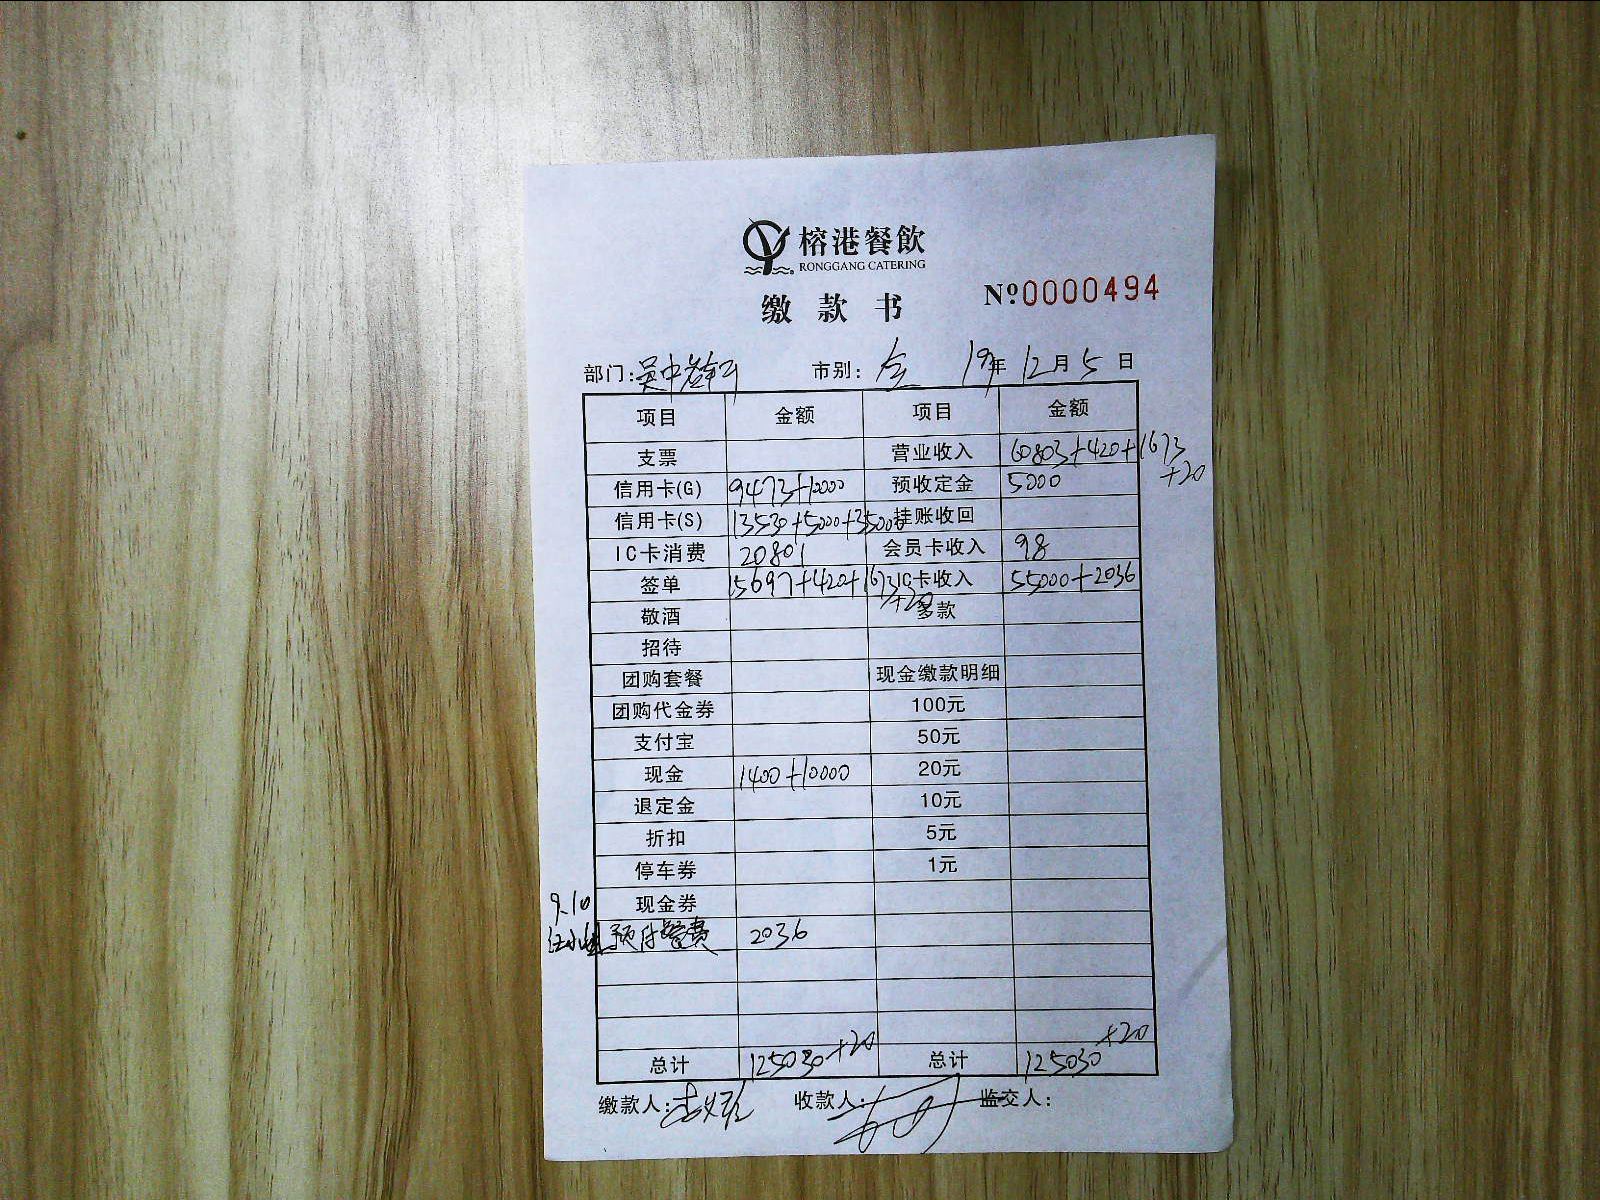 榕港餐飲
RONGGANG CATERING
缴款书
Nº0000494
部门:吴中 市别:全 19年12月5日
项目 金额 项目 金额
支票 营业收入 60803+420+1673
+20
信用卡(G) 9473+10000 预收定金 5000
信用卡(S) 13530+5000+35000 挂账收回
IC卡消费 20801 会员卡收入 98
签单 15697+420+1673 IC卡收入 55000+2036
+20
敬酒 多款
招待
团购套餐 现金缴款明细
团购代金券 100元
支付宝 50元
现金 1400+10000 20元
退定金 10元
折扣 5元
停车券 1元
9.10 现金券
预付餐费 2036
总计 125030+20 总计 125030+20
缴款人: 收款人: 监交人: